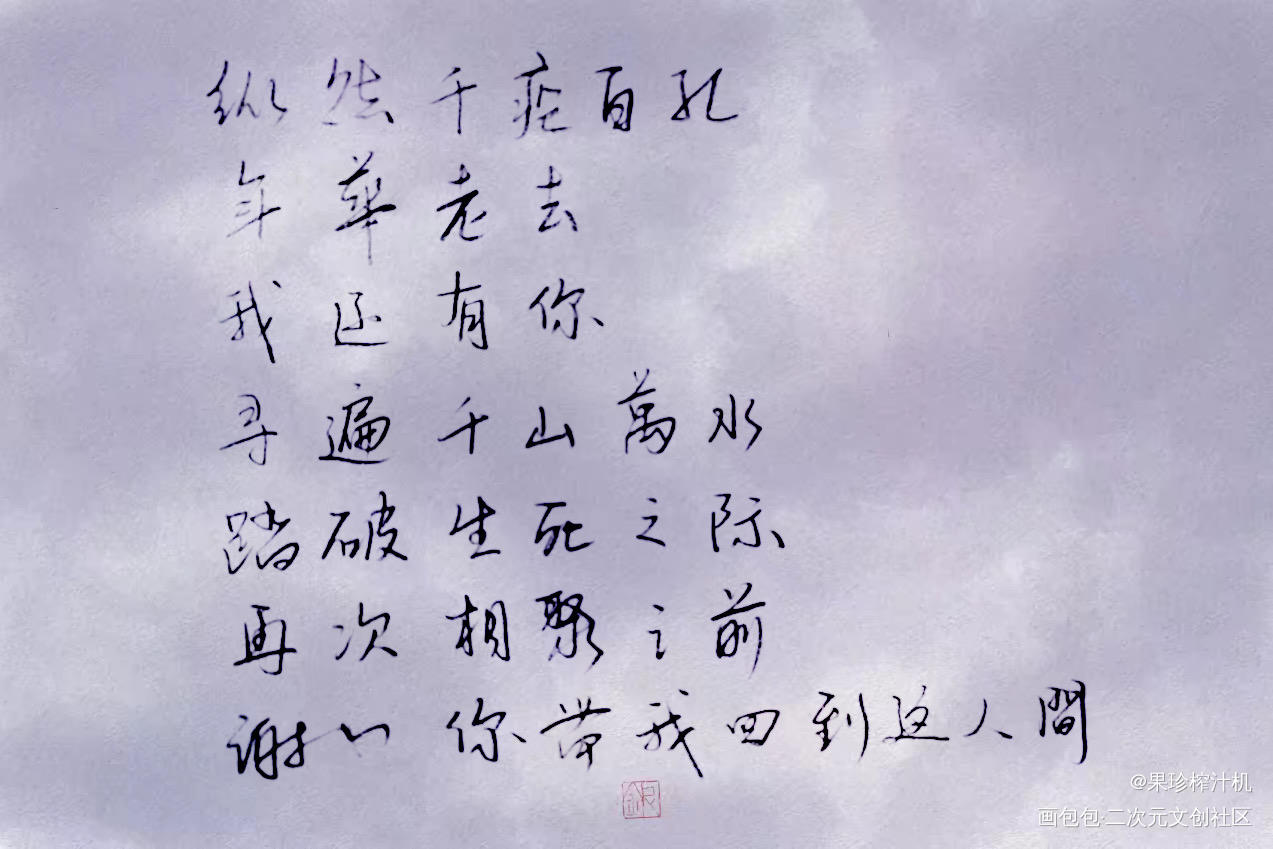 纵然千疮百孔
年华老去
我还有你
寻遍千山萬水
踏破生死之际
再次相聚之前
谢谢你带我回到这人間
銀
@果珍榨汁机
画包包·二次元文创社区